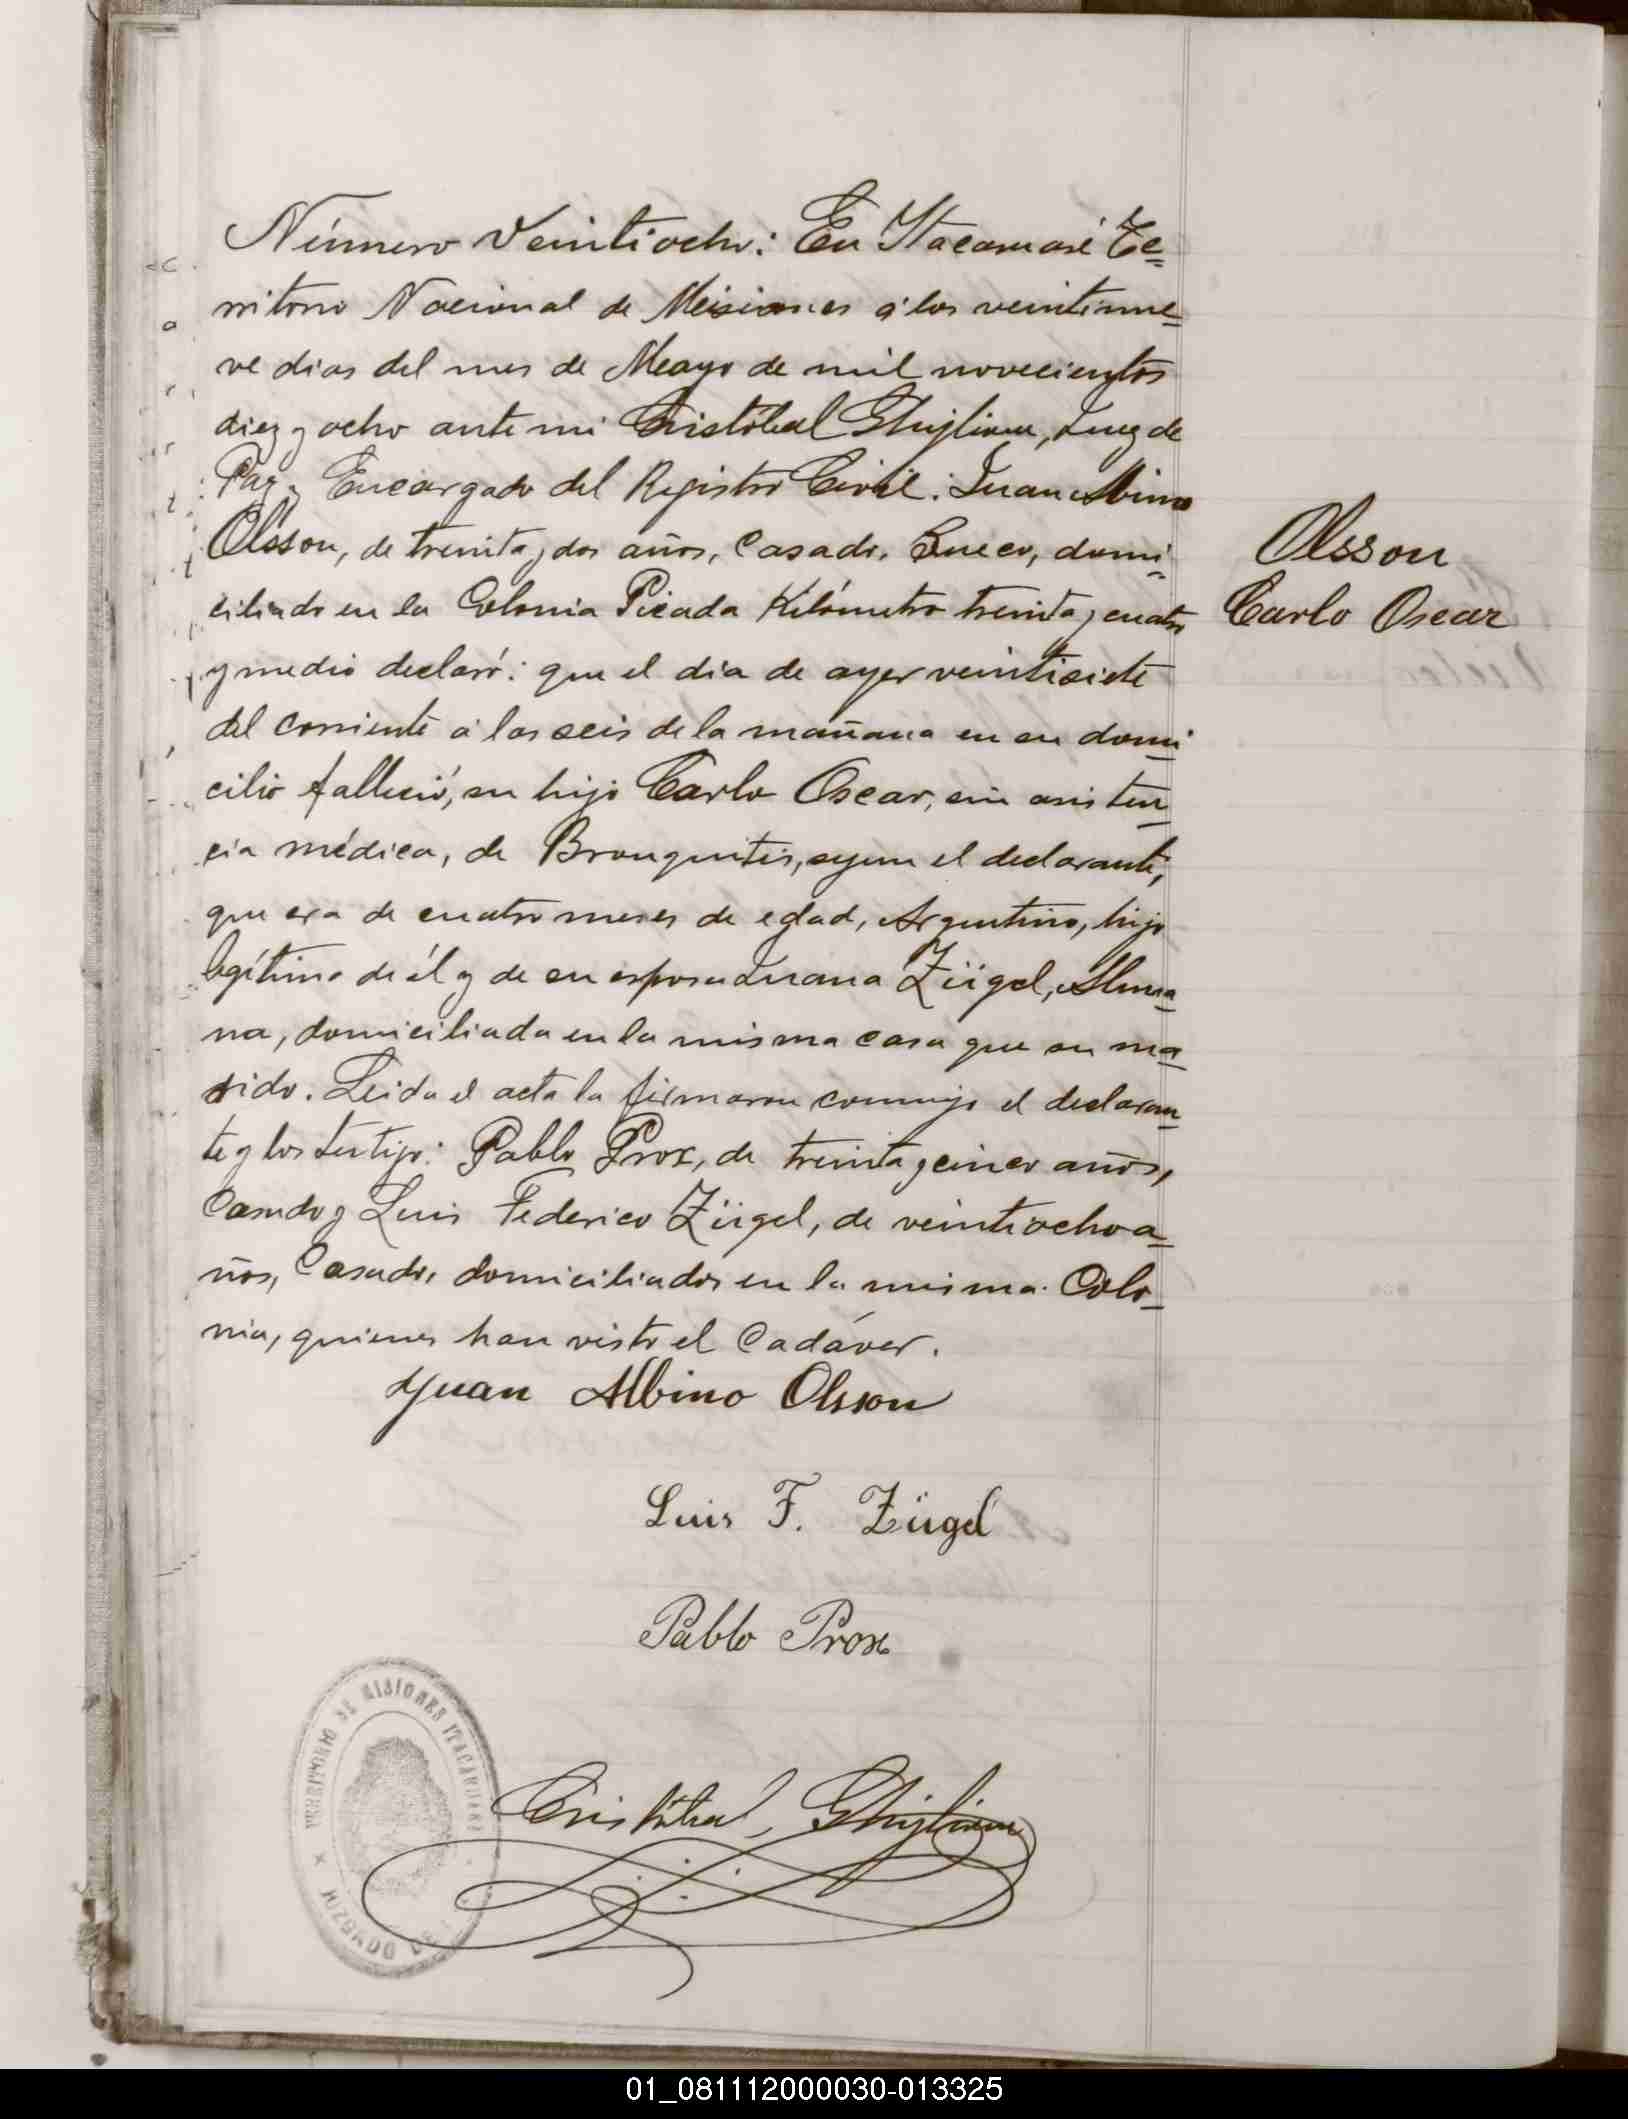 Número Veintiocho: En Itacaruaré Te=
rritorio Nacional de Misiones á los veintinue=
ve dias del mes de Mayo de mil novecientos
diez y ocho ante mi Cristóbal Ghiglione, Juez de
Paz y Encargado del Registro Civil: Juan Albino
Olsson, de treinta y dos años, Casado, Sueco, domi=
ciliado en la Colonia Picada Kilómetro treinta y cuatro
y medio declaró: que el dia de ayer veintisiete
del corriente á las seis de la mañana en su domi
cilio falleció, su hijo Carlo Oscar, sin asisten
cia médica, de Bronquitis, segun el declarante,
que era de cuatro meses de edad, Argentino, hijo
legítimo de él y de su esposa Juana Zügel, Alema
na, domiciliada en la misma casa que su ma
rido. Leida el acta la firmaron conmigo el declaran
te y los testigo: Pablo Prox, de treinta y cinco años,
Casado y Luis Federico Zügel, de veintiocho a=
ños, Casado, domiciliados en la misma Colo=
nia, quienes han visto el Cadáver.
Olsson
Carlo Oscar
Juan Albino Olsson
Luis F. Zügel
Pablo Prox
Cristóbal Ghiglione
TERRITORIO DE MISIONES ITACARUARE
JUZGADO DE
01_081112000030-013325